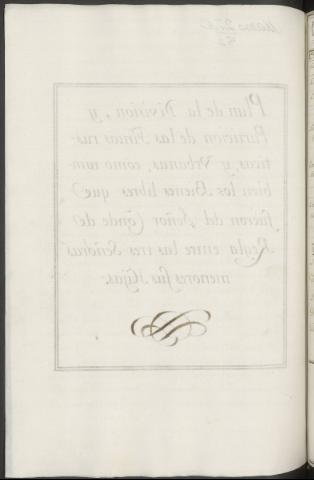 Plan de la Division, y
Particion de las Fincas rus-
ticas, y Vrbanas, como tam-
bien los Bienes libres que
fueron del Señor Conde de
Regla entre las tres Señoras
menores sus Hijas.